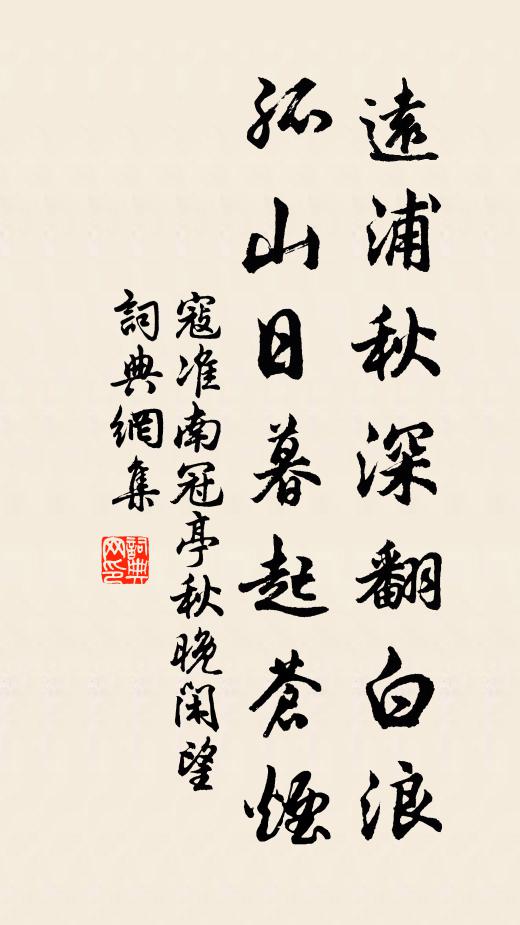 遠浦秋深翻白浪
孤山日暮起蒼煙
寇准南冠亭秋晚闲望
詞典網集
詞典网印